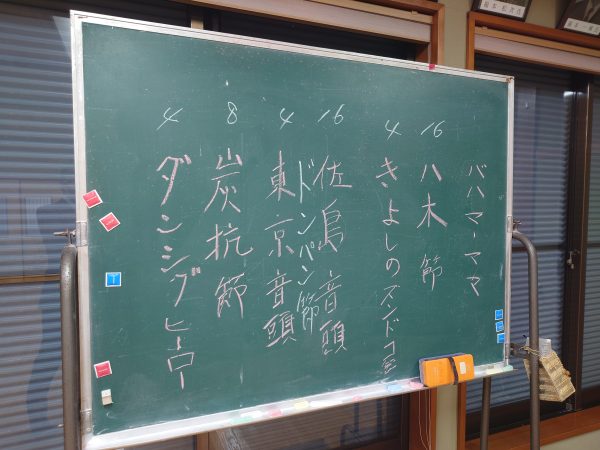 バハマーママ
16 八木節
4 きよしのズンドコ節
16 佐島音頭
ドンパン節
4 東京音頭
8 炭抗節
4 ダンシングヒーロー